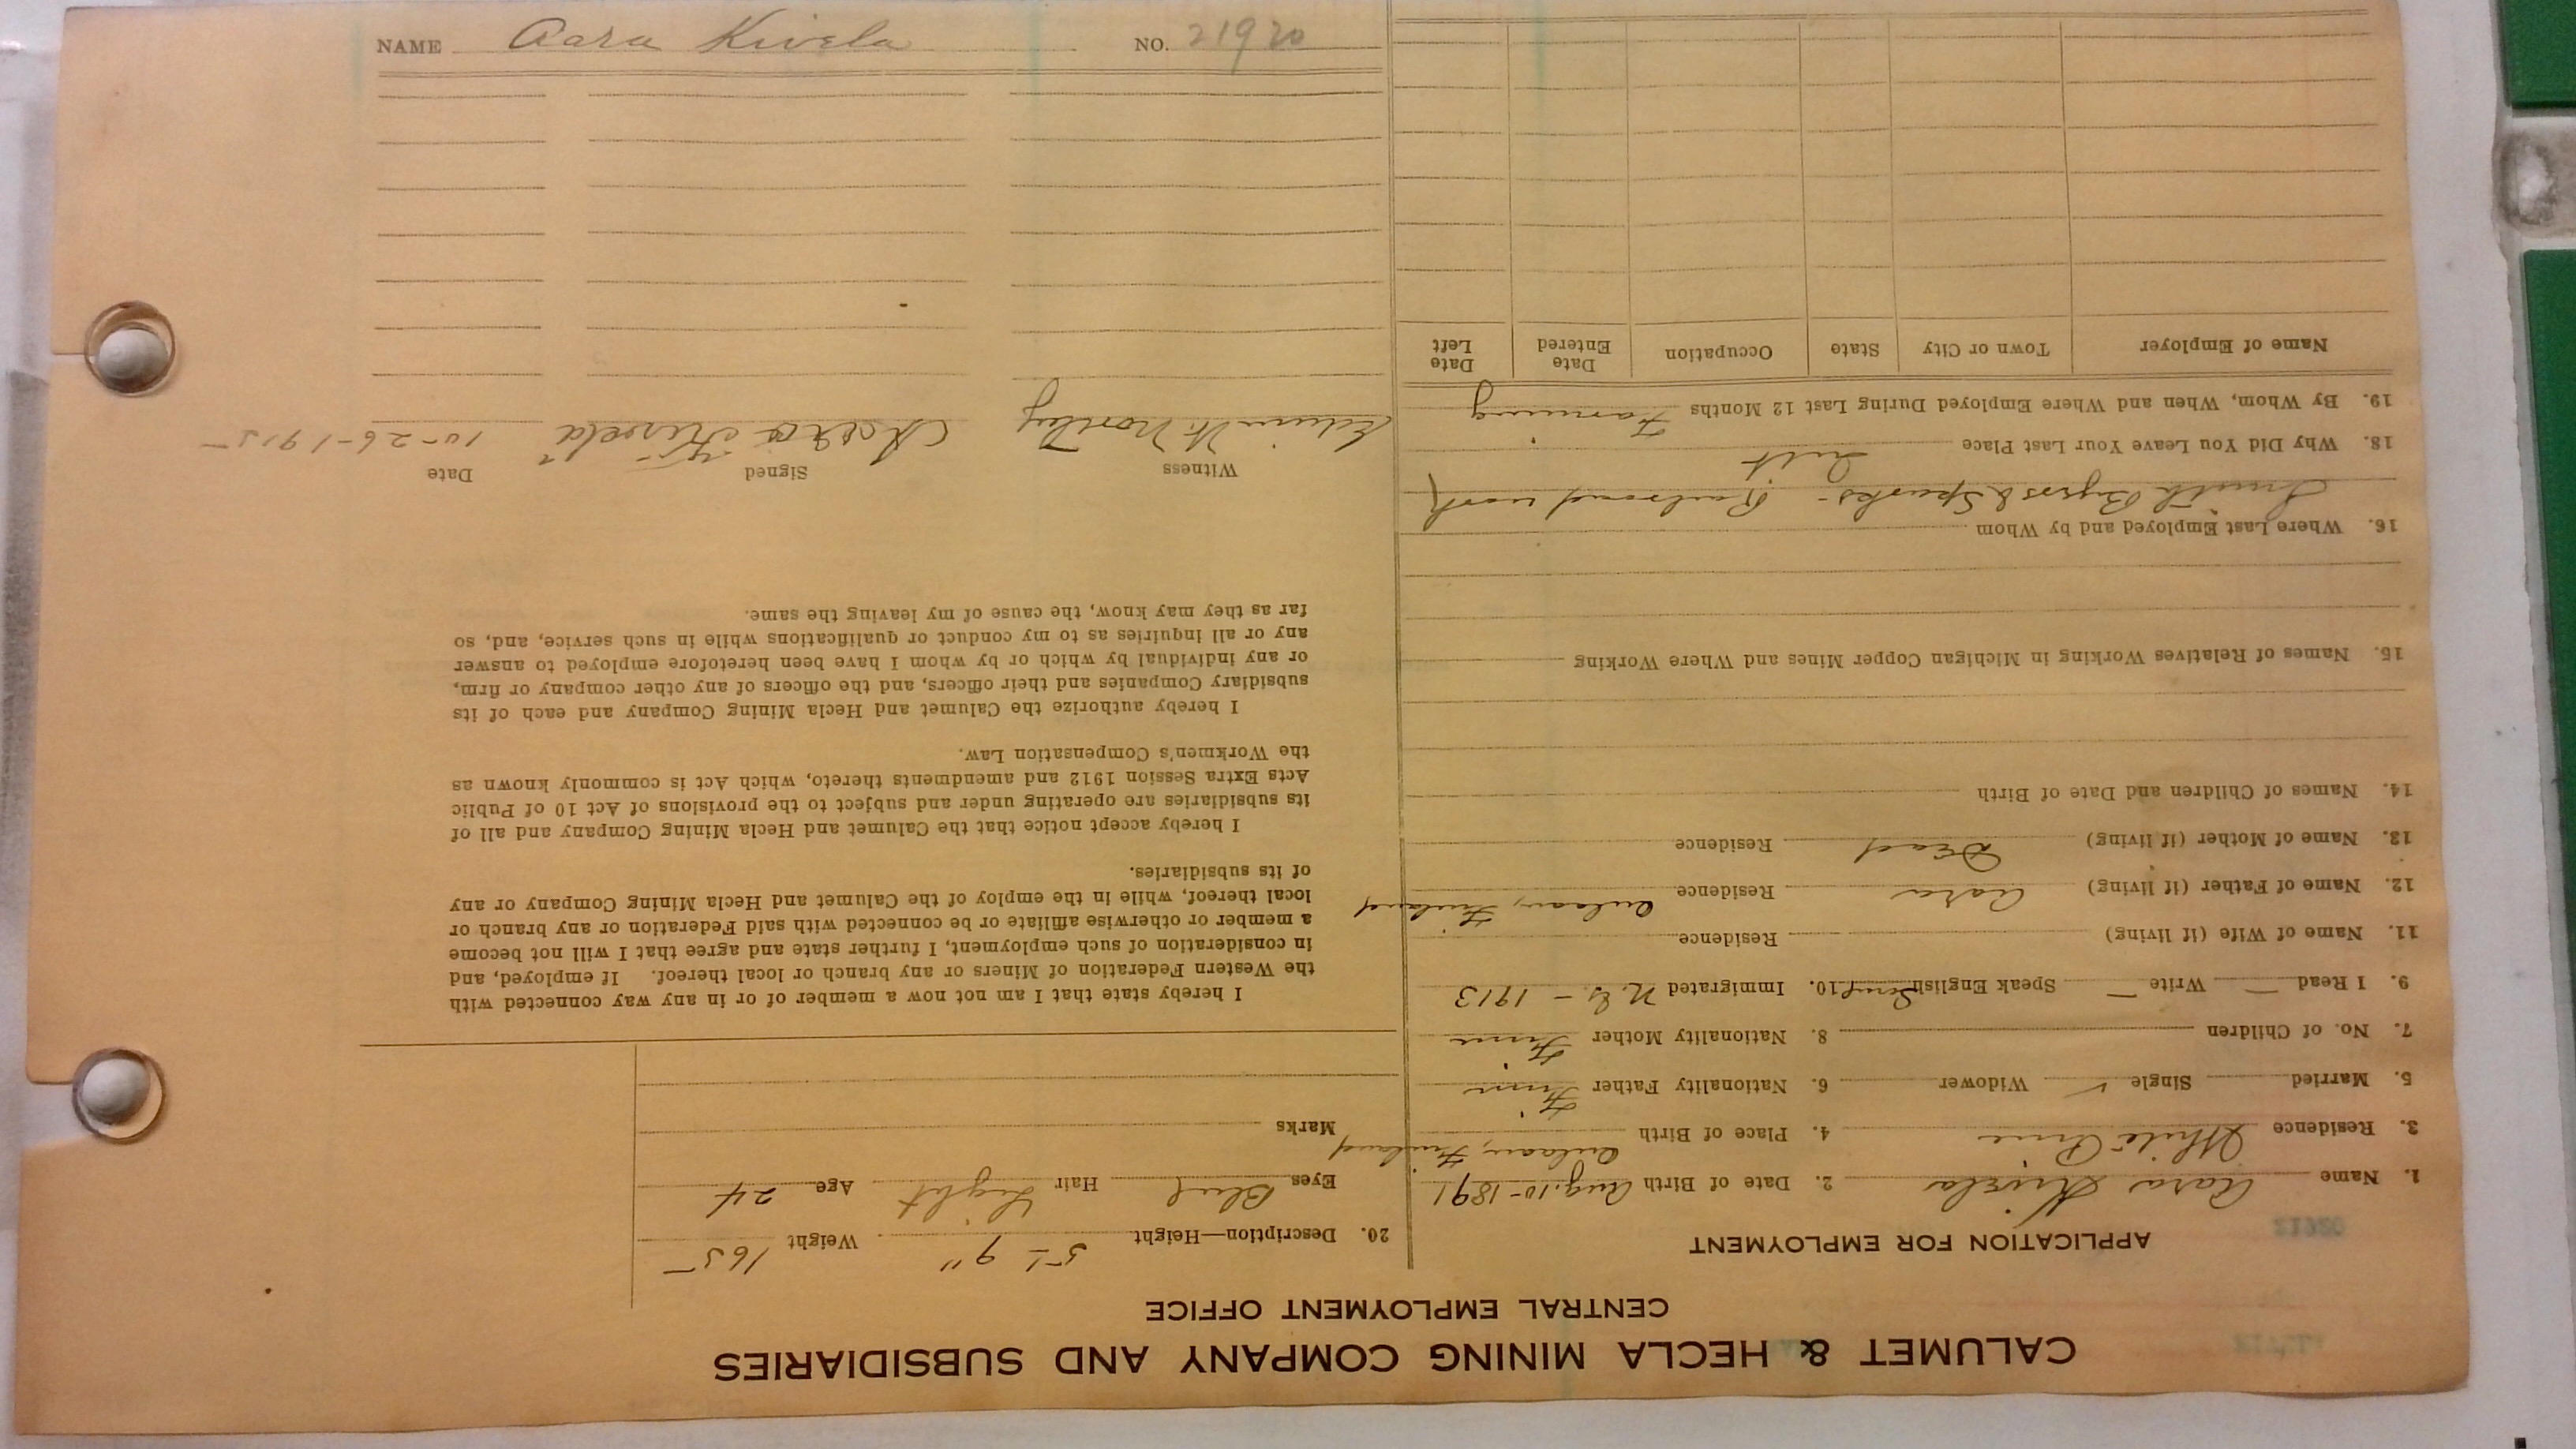 CALUMET & HECLA MINING COMPANY AND SUBSIDIARIES
CENTRAL EMPLOYMENT OFFICE
APPLICATION FOR EMPLOYMENT
1. Name Aara Kivela 2. Date of Birth Aug. 10-1891
3. Residence White Pine 4. Place of Birth Finland
5. Married Single ✓ Widower 6. Nationality Father Finn
7. No. of Children 8. Nationality Mother Finn
9. I Read — Write — Speak English 10. Immigrated N.Y. - 1913
11. Name of Wife (if living) Residence
12. Name of Father (if living) Aara Residence Finland
13. Name of Mother (if living) Dead Residence
14. Names of Children and Date of Birth
15. Names of Relatives Working in Michigan Copper Mines and Where Working
16. Where Last Employed and by Whom
Smith Byers & Sparks - Railroad work
18. Why Did You Leave Your Last Place Quit
19. By Whom, When and Where Employed During Last 12 Months Farming
Name of Employer Town or City State Occupation Date Entered Date Left
20. Description—Height 5 - 9" Weight 165
Eyes Blue Hair Light Age 24
Marks
I hereby state that I am not now a member of or in any way connected with
the Western Federation of Miners or any branch or local thereof. If employed, and
in consideration of such employment, I further state and agree that I will not become
a member or otherwise affiliate or be connected with said Federation or any branch or
local thereof, while in the employ of the Calumet and Hecla Mining Company or any
of its subsidiaries.
I hereby accept notice that the Calumet and Hecla Mining Company and all of
its subsidiaries are operating under and subject to the provisions of Act 10 of Public
Acts Extra Session 1912 and amendments thereto, which Act is commonly known as
the Workmen's Compensation Law.
I hereby authorize the Calumet and Hecla Mining Company and each of its
subsidiary Companies and their officers, and the officers of any other company or firm,
or any individual by which or by whom I have been heretofore employed to answer
any or all inquiries as to my conduct or qualifications while in such service, and, so
far as they may know, the cause of my leaving the same.
Witness Signed Date
Edwin Kivelä 10-26-1915
NAME Aara Kivela NO. 21920